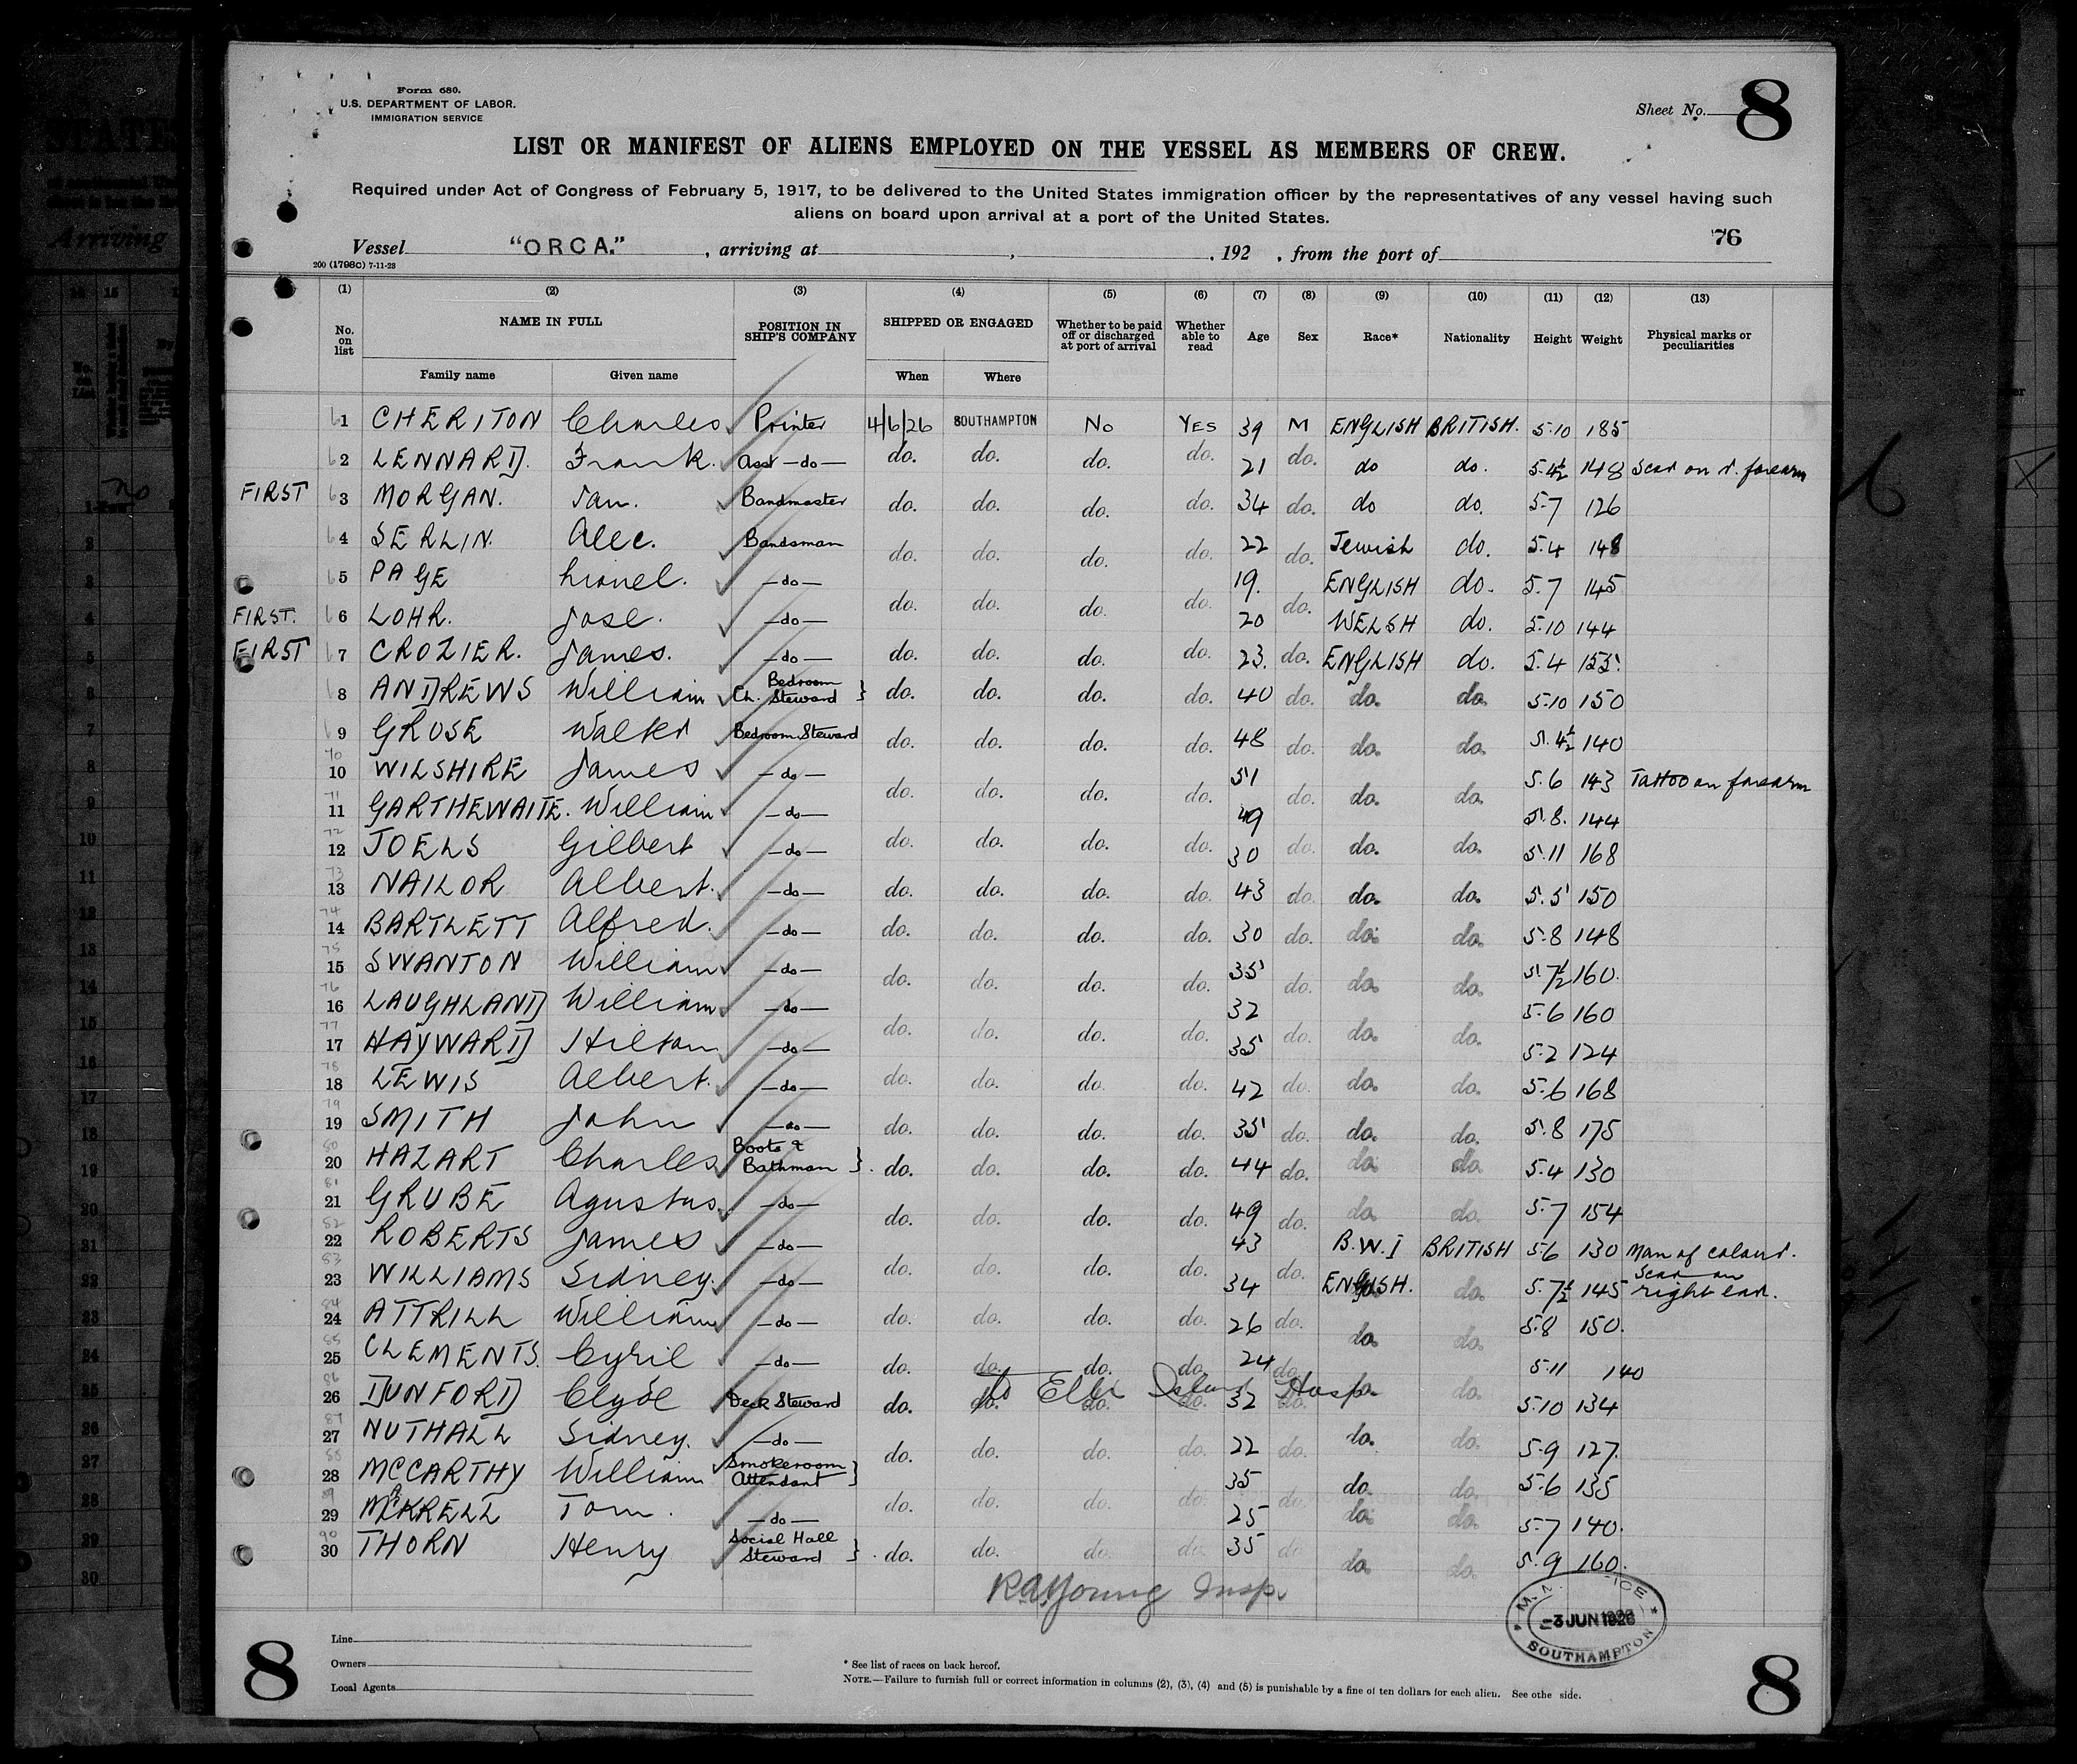 Form 680.
U.S. DEPARTMENT OF LABOR.
IMMIGRATION SERVICE
Sheet No. 8
LIST OR MANIFEST OF ALIENS EMPLOYED ON THE VESSEL AS MEMBERS OF CREW.
Required under Act of Congress of February 5, 1917, to be delivered to the United States immigration officer by the representatives of any vessel having such
aliens on board upon arrival at a port of the United States.
76
Vessel "ORCA." , arriving at , , 192 , from the port of
200 (1798c) 7-11-23
(1) (2) (3) (4) (5) (6) (7) (8) (9) (10) (11) (12) (13)
No. on list NAME IN FULL POSITION IN SHIP'S COMPANY SHIPPED OR ENGAGED Whether to be paid off or discharged at port of arrival Whether able to read Age Sex Race* Nationality Height Weight Physical marks or peculiarities
Family name Given name When Where
1 CHERITON Charles Printer 4/6/26 SOUTHAMPTON No YES 39 M ENGLISH BRITISH. 5.10 185
2 LENNARD. Frank. Asst -do- do. do. do. do. 21 do. do do. 5.4½ 148 Scar on r. forearm
FIRST 3 MORGAN. Ian. Bandmaster do. do. do. do. 34 do. do do. 5.7 126
4 SERLIN. Alec. Bandsman do. do. do. do. 22 do. Jewish do. 5.4 148
5 PAGE Lionel. -do- do. do. do. do. 19. do. ENGLISH do. 5.7 145
FIRST. 6 LOHR. Jose. -do- 20 WELSH do. 5.10 144
FIRST 7 CROZIER. James. -do- do. do. do. do. 23. do. ENGLISH do. 5.4 155.
8 ANDREWS William Ch. Bedroom Steward } do. do. do. do. 40 do. do. do. 5.10 150
9 GROSE Walter Bedroom Steward do. do. do. do. 48 do. do. do. 5.4½ 140
70 10 WILSHIRE James -do- do. do. do. do. 51 do. do. do. 5.6 143 Tattoo on forearm
71 11 GARTHEWAITE. William -do- 49 5.8. 144
72 12 JOELS Gilbert -do- do. do. do. do. 30 do. do. do. 5.11 168
73 13 NAILOR Albert. -do- do. do. do. do. 43 do. do. do. 5.5 150
74 14 BARTLETT Alfred. -do- do. do. do. do. 30 do. do. do. 5.8 148
75 15 SWANTON William -do- do. do. do. do. 35 do. do. do. 5.7½ 160.
76 16 LAUGHLAND William -do- 32 5.6 160
77 17 HAYWARD Hilton -do- do. do. do. do. 35 do. do. do. 5.2 124
78 18 LEWIS Albert. -do- do. do. do. do. 42 do. do. do. 5.6 168
79 19 SMITH John -do- do. do. do. do. 35 do. do. do. 5.8 175
80 20 HAZART Charles Boots & Bathman }. do. do. do. do. 44 do. do. do. 5.4 130
81 21 GRUBE Agustus. -do- do. do. do. do. 49 do. do. do. 5.7 154
82 22 ROBERTS James -do- 43 B.W.I BRITISH 5.6 130 Man of colour.
83 23 WILLIAMS Sidney. -do- do. do. do. do. 34 do. ENGLISH. do. 5.7½ 145 Scar on right ear.
84 24 ATTRILL William -do- do. do. do. do. 26 do. do. do. 5.8 150.
85 25 CLEMENTS. Cyril -do- do. do. do. do. 24 do. 5.11 140
To Ellis Island Hosp.
86 26 DUNFORD Clyde Deck Steward do. do. do. do. 32 do. do. do. 5.10 134
87 27 NUTHALL Sidney. -do- do. do. do. do. 22 do. do. do. 5.9 127.
88 28 McCARTHY William Smokeroom Attendant } 35 do. do. 5.6 135
89 29 Tom. -do- do. do. do. do. 25 do. do. do. 5.7 140.
90 30 THORN Henry Social Hall Steward }. do. do. do. do. 35 do. do. do. 5.9 160.
R.A. Young Insp.
-3 JUN 1926
SOUTHAMPTON
Line
Owners
Local Agents
* See list of races on back hereof.
NOTE.—Failure to furnish full or correct information in columns (2), (3), (4) and (5) is punishable by a fine of ten dollars for each alien. See othe side.
8
8